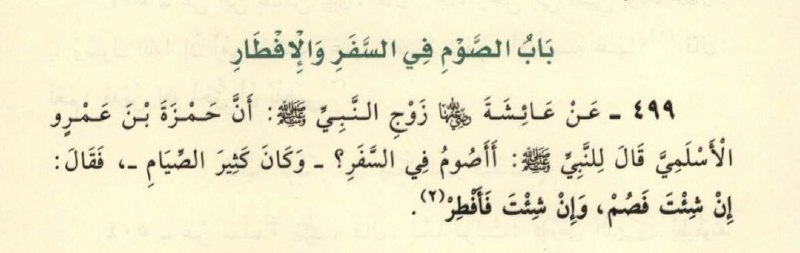 بَابُ الصَّوْمِ فِي السَّفَرِ وَالْإِفْطَارِ
٤٩٩ ـ عَنْ عَائِشَةَ ﵂ زَوْجِ النَّبِيِّ ﷺ: أَنَّ حَمْزَةَ بْنَ عَمْرٍو
الْأَسْلَمِيَّ قَالَ لِلنَّبِيِّ ﷺ: أَأَصُومُ فِي السَّفَرِ؟ ـ وَكَانَ كَثِيرَ الصِّيَامِ ـ، فَقَالَ:
إِنْ شِئْتَ فَصُمْ، وَإِنْ شِئْتَ فَأَفْطِرْ(٢).